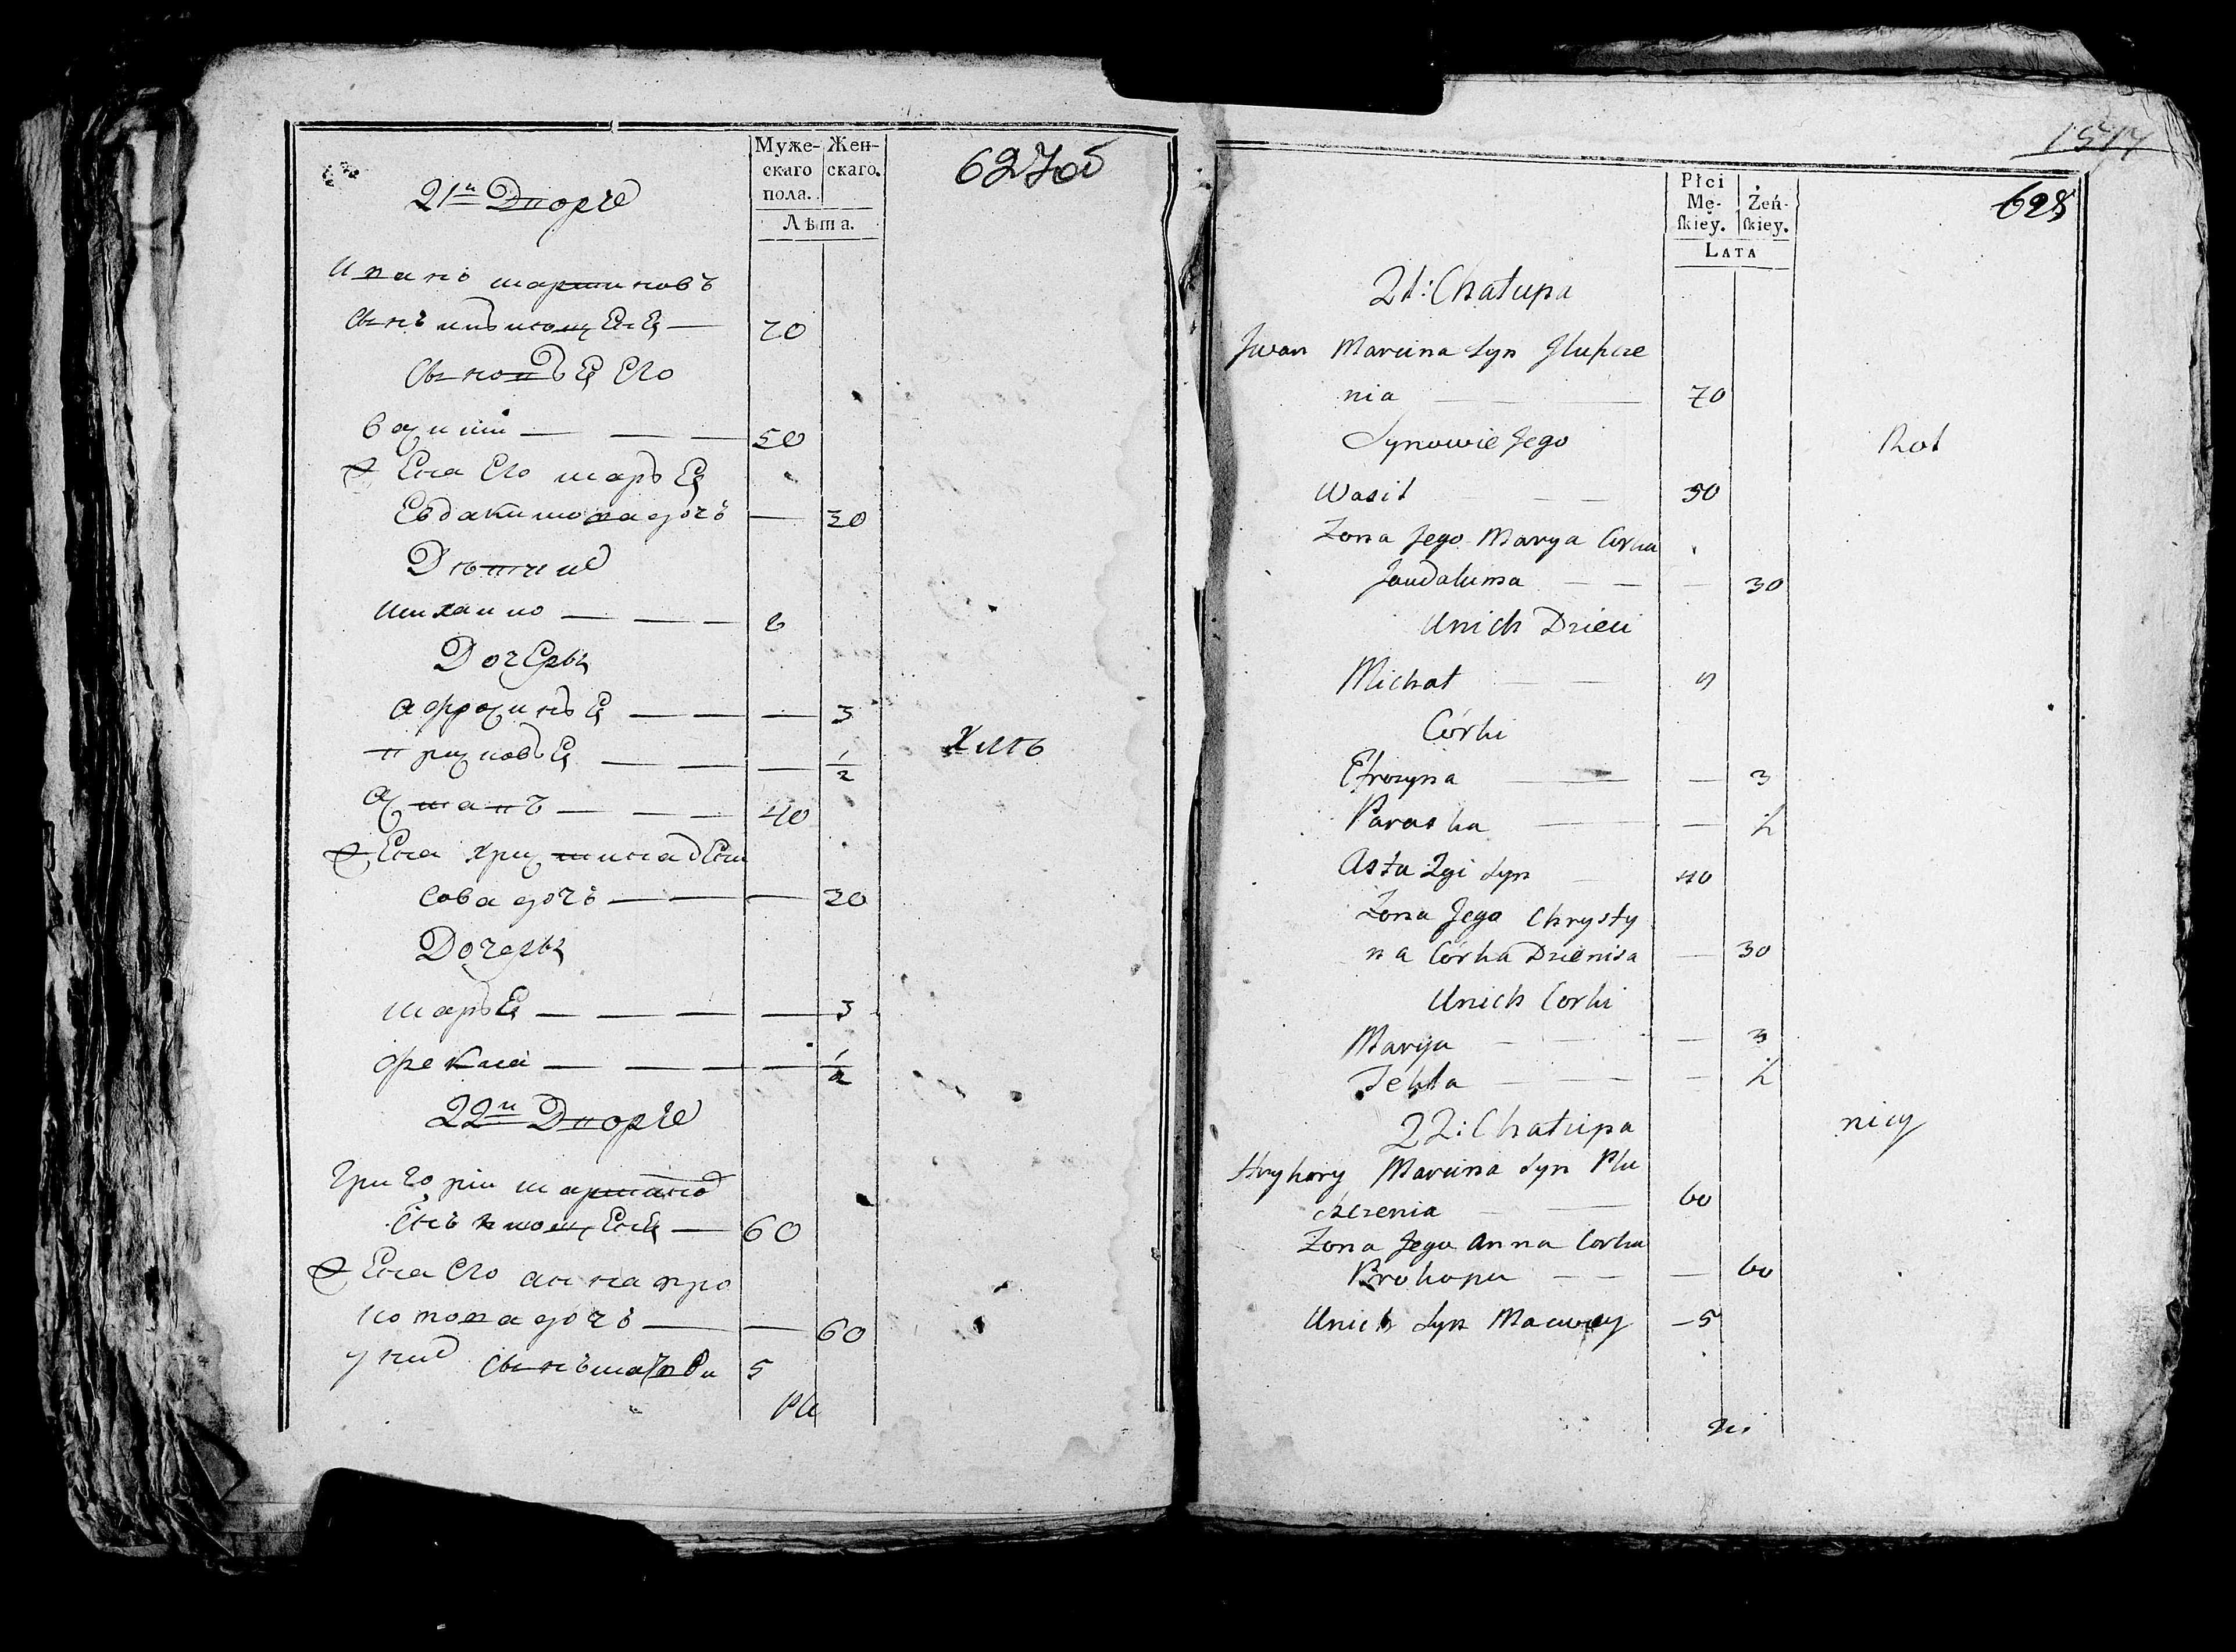 Муже-
скаго
пола.
Жен-
скаго.
Лѣта.
627об
21й Дворъ
Иванъ мартиновъ
Сынъ
70
Сыновья Его
василiй — — — 50
Жена Его марья
Евдакимова дочъ — 30
Дѣти
михайло — — —
Дочеры
афросинья — — — 3
прасковья — — — 1/2
Астапъ — — — 40
Жена христина дени
сова дочъ — — — 20
Дочеры
марья — — — 3
фекла — — — 1/2
22й Дворъ
Григорiй мартинов
60
Жена Его анна про
копова дочъ — — 60
у них Сынъ матвѣй 5
Хить
Plu
1517
628
Płci
Mę-
ſkiey.
Żeń-
ſkiey.
LATA
21: Chałupa
Jwan Marcina Syn Hlupcze
nia — — 70
Synowie Jego
Wasil — — 50
Zona Jego Marya Corka
Jaudakima — — — 30
Unich Dzieci
Michał — —
Córki
Efrozyna — — 3
Paraska — — ½
Asta Zgi Syn — 40
Zona Jego Chrysty
na Córka Dzienisa — 30
Unich Corki
Marya — — — 3
Tekla — — — ½
22: Chałupa
Hryhory Marcina Syn Plu
szczenia — — 60
Zona Jego Anna Corka
Prokopa — — — 60
Unich Syn Maciwey — 5
Rot
nicy